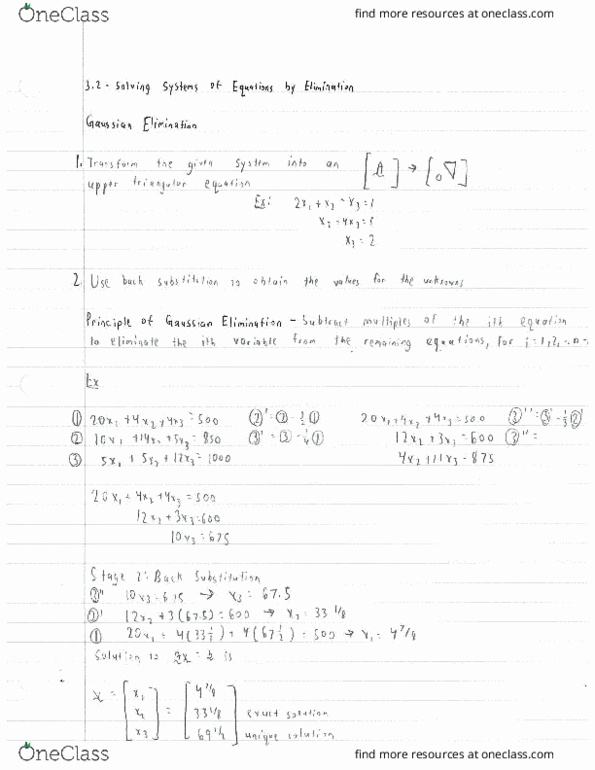 OneClass find more resources at oneclass.com
3.2 - Solving Systems of Equations by Elimination
Gaussian Elimination
1. Transform the given system into an [A] → [0▽]
upper triangular equation
Ex: 2x₁ + x₂ - x₃ = 1
x₂ - 4x₃ = 5
x₃ = 2
2. Use back substitution to obtain the values for the unknowns
Principle of Gaussian Elimination - Subtract multiples of the ith equation
to eliminate the ith variable from the remaining equations, for i = 1, 2,
Ex
① 20x₁ + 4x₂ + 4x₃ = 500 ②' = ② - ½ ① 20x₁ + 4x₂ + 4x₃ = 500 ③'' = ③' - ⅓ ②'
② 10x₁ + 14x₂ + 5x₃ = 850 ③' = ③ - ¼ ① 12x₂ + 3x₃ = 600 ③'' =
③ 5x₁ + 5x₂ + 12x₃ = 1000 4x₂ + 11x₃ = 875
20x₁ + 4x₂ + 4x₃ = 500
12x₂ + 3x₃ = 600
10x₃ = 675
Stage 2: Back Substitution
③'' 10x₃ = 675 → x₃ = 67.5
②' 12x₂ + 3(67.5) = 600 → x₂ = 33 1/8
① 20x₁ + 4(33 ) + 4(67 ½) = 500 → x₁ = 4 7/8
Solution to Ax = b is
x = [x₁ x₂ x₃] = [4 7/8 33 1/8 ]
exact solution
unique solution
OneClass find more resources at oneclass.com